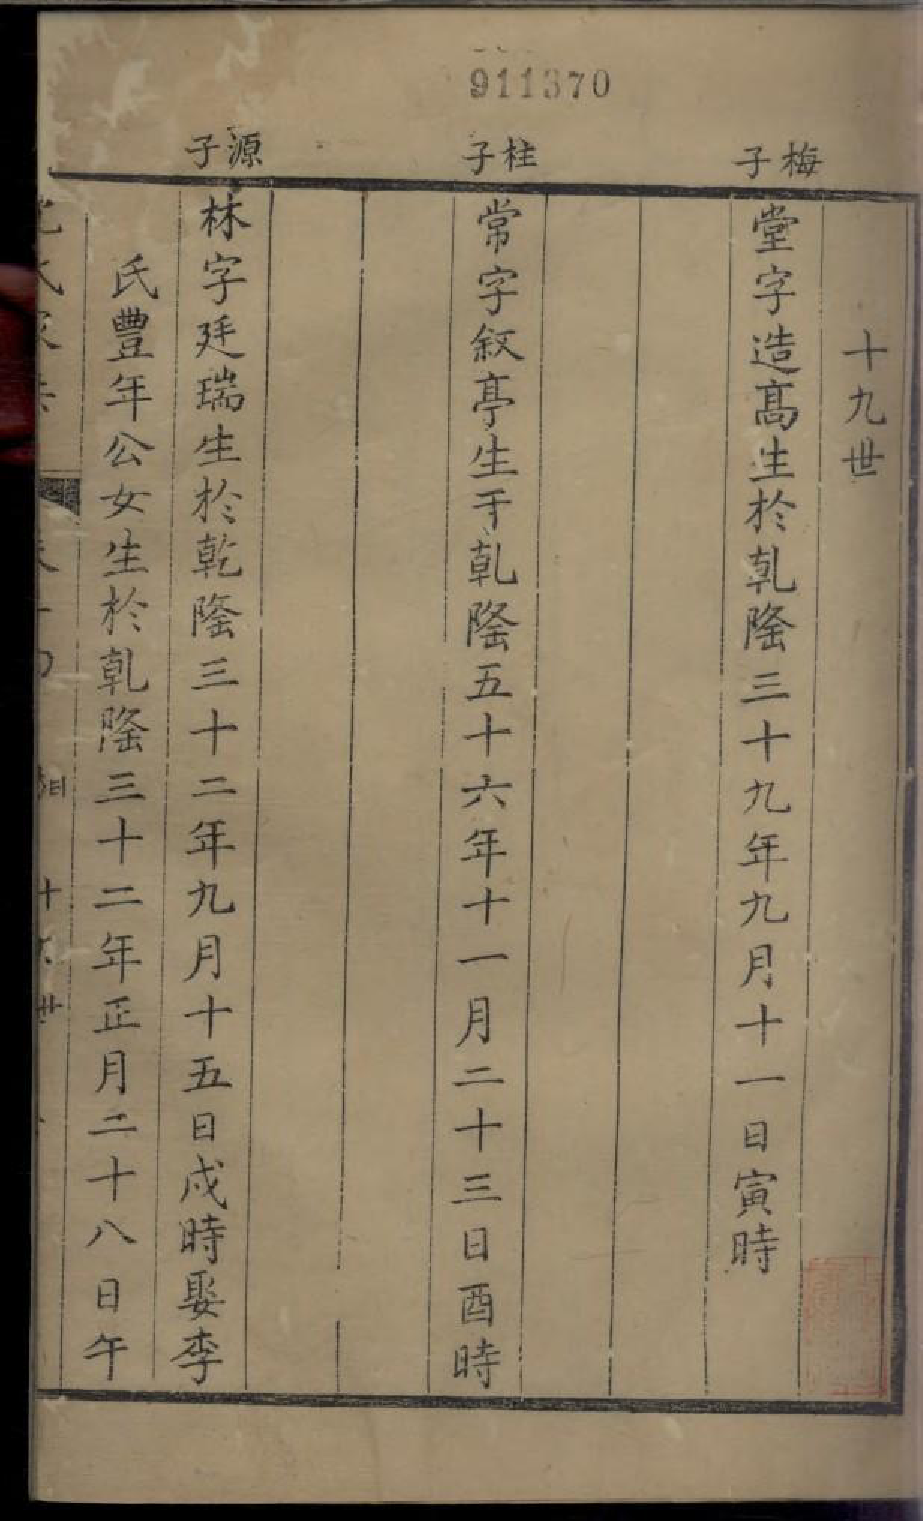 911370
十九世
梅子
堂字造高生於乹隆三十九年九月十一日寅時
柱子
常字叙亭生于乹隆五十六年十一月二十三日酉時
源子
林字廷瑞生於乾隆三十二年九月十五日戌時娶李
氏豐年公女生於乹隆三十二年正月二十八日午